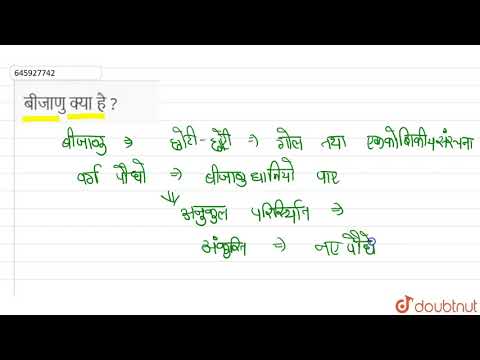 645927742
बीजाणु क्या है ?
बीजाणु ⇒ छोटी-छोटी ⇒ गोल तथा एककोशिकीय संरचना
वर्ग पौधों ⇒ बीजाणुधानियो पाए
अनुकूल परिस्थिति ⇒
अंकुरित ⇒ नए पौधे
doubtnut